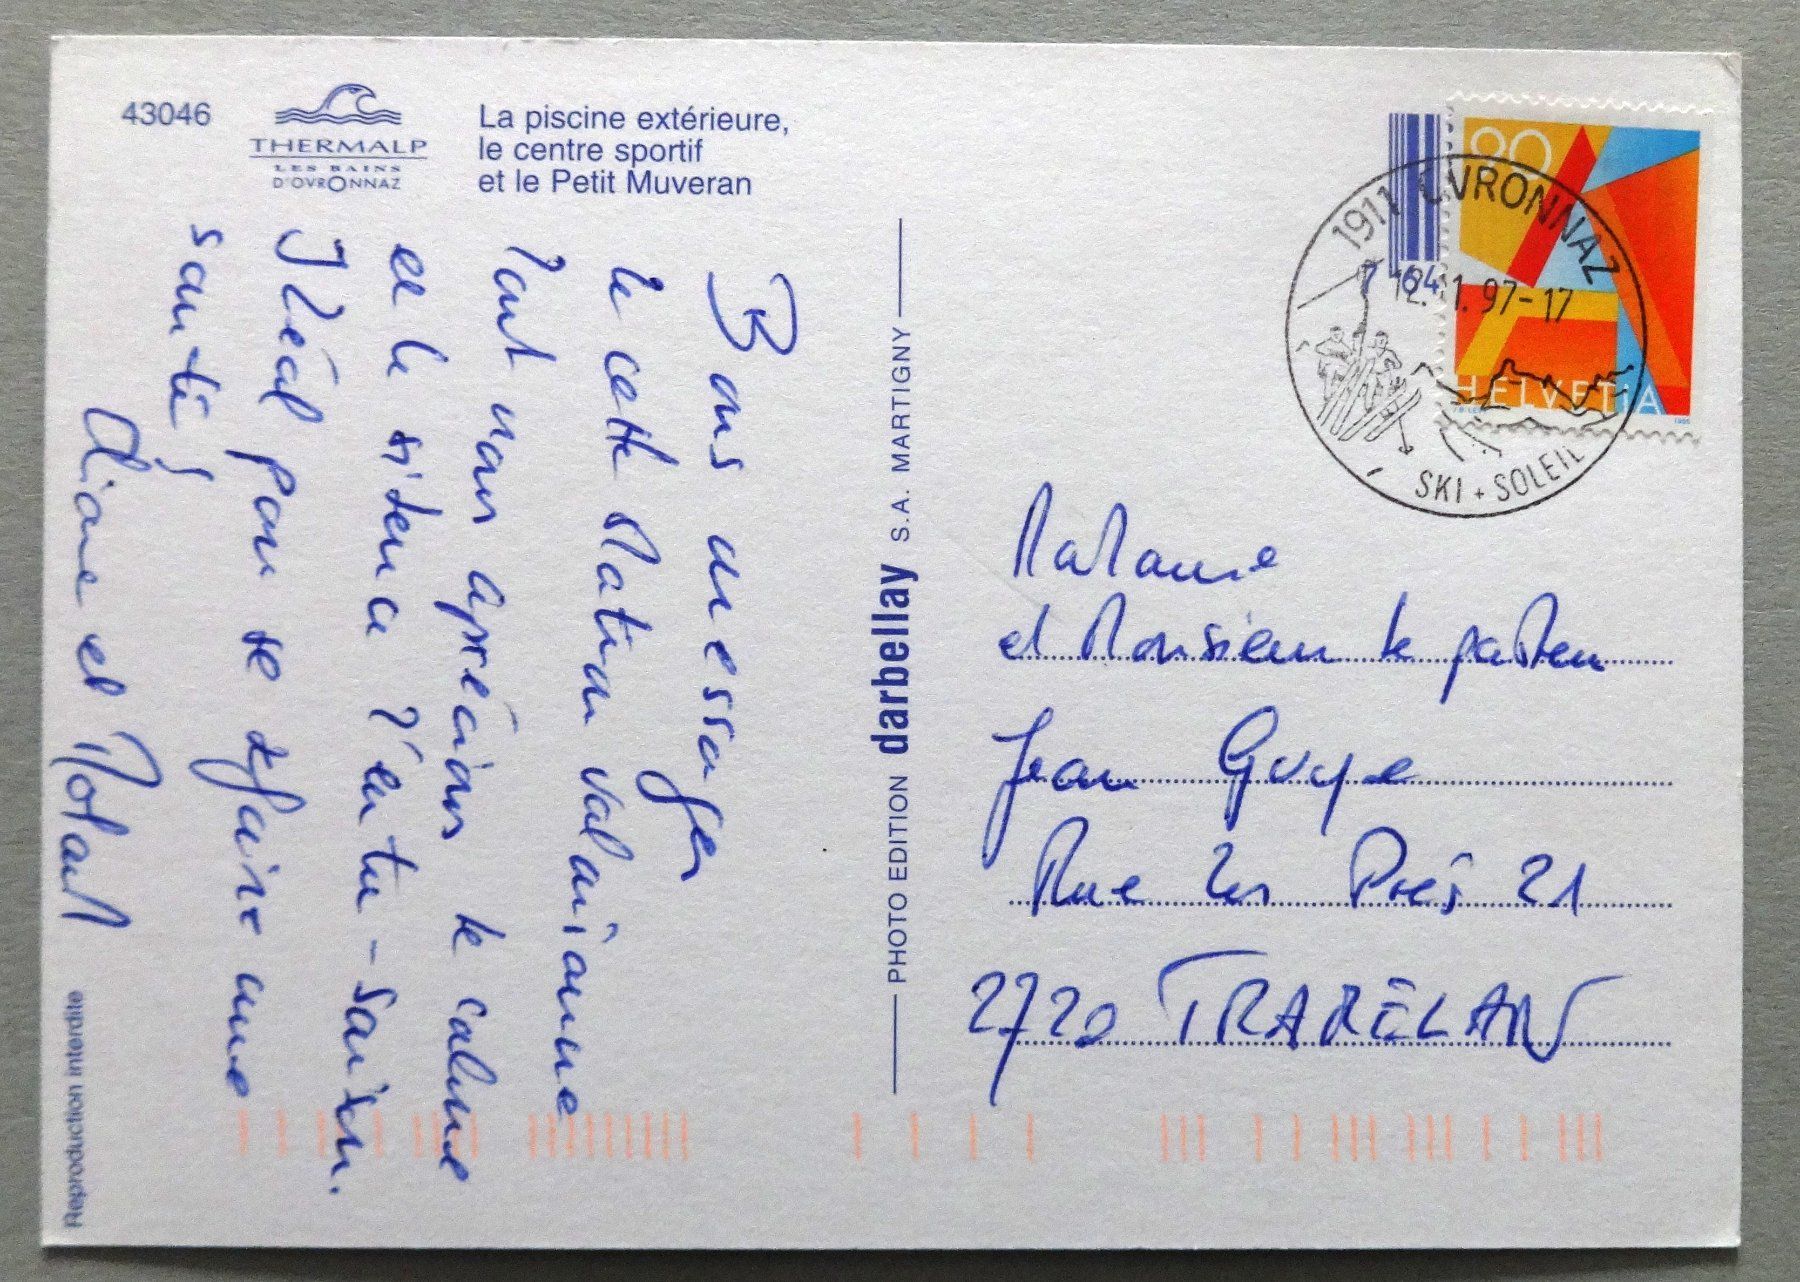 43046
THERMALP
LES BAINS
D'OVRONNAZ
La piscine extérieure,
le centre sportif
et le Petit Muveran
Bons messages
de cette station valaisanne
dont nous apprécions le calme
et le silence d'entre-saison.
Idéal pour se refaire une
santé!
et
Reproduction interdite
PHOTO EDITION darbellay S.A. MARTIGNY
90
HELVETIA
1995
1911 OVRONNAZ
12.11.97-17
SKI + SOLEIL
Madame
et Monsieur le pasteur
Jean Guye
Rue des Prés 21
2720 TRAMELAN